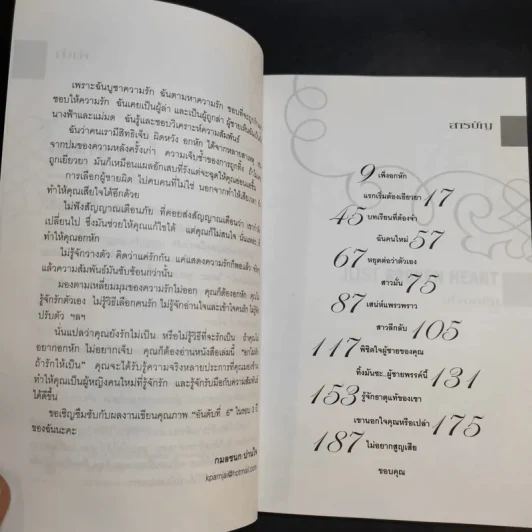 เพราะฉันบูชาความรัก ฉันตามหาความรัก
ชอบให้ความรัก ฉันเคยเป็นผู้ล่า และเป็นผู้ถูกล่า
นางฟ้าและแม่มด ฉันรู้และชอบวิเคราะห์ความสัมพันธ์
ฉันว่าคนเรามีสิทธิเจ็บ ผิดหวัง อกหัก ได้จากหลายสาเหตุ
จากปมของความหลังครั้งเก่า ความเจ็บช้ำของการถูกทิ้ง
ถูกเยียวยา มันก็เหมือนแผลอักเสบที่รังแต่จะ
การเลือกผู้ชายผิด ไปคบคนที่ไม่ใช่ นอกจากทำให้เสียเวลา
ทำให้คุณเสียใจได้อีกด้วย
ไม่ฟังสัญญาณเตือนภัย ที่คอยส่งสัญญาณเตือนว่า
เปลี่ยนไป ซึ่งมันช่วยให้คุณแก้ไขได้ แต่คุณก็ไม่สนใจ
ทำให้คุณอกหัก
ไม่รู้จักวางตัว คิดว่าแค่รักกัน แค่แสดงความรักก็พอแล้ว
แล้วความสัมพันธ์มันซับซ้อนกว่านั้น
มองตามเหลี่ยมมุมของความรักไม่ออก คุณก็ต้องอกหัก
รู้จักรักตัวเอง ไม่รู้วิธีเลือกคนรัก ไม่รู้จักอ่านใจและเข้าใจคนรัก
ปรับตัว ฯลฯ
นั่นแปลว่าคุณยังรักไม่เป็น หรือไม่รู้วิธีที่จะรักเป็น ถ้าคุณไม่
อยากอกหัก ไม่อยากเจ็บ คุณก็ต้องอ่านหนังสือเล่มนี้
ถ้ารักให้เป็น" คุณจะได้รับรู้ความจริงหลายประการที่คุณมองข้าม
ทำให้คุณเป็นผู้หญิงคนใหม่ที่รู้จักรัก และรู้จักรับมือกับความสัมพันธ์
ได้ดีขึ้น
ขอเชิญชื่นชมกับผลงานเขียนคุณภาพ "อันดับที่ ๕" ในรอบ 3 ปี
ของฉันนะคะ
กมลชนก ปานใจ
kparnjai@hotmail.com
สารบัญ
9 เพิ่งอกหัก
แรกเริ่มต้องเยียวยา 17
45 บทเรียนที่ต้องจำ
ฉันคนใหม่ 57
67 หยุดต่อว่าตัวเอง
สาวมั่น 75
87 เสน่ห์แพรวพราว
สาวลึกลับ 105
117 พิชิตใจผู้ชายของคุณ
ทิ้งมันซะ..ผู้ชายพรรค์นี้ 131
153 รู้จักธาตุแท้ของเขา
เขานอกใจคุณหรือเปล่า 175
187 ไม่อยากสูญเสีย
ขอบคุณ